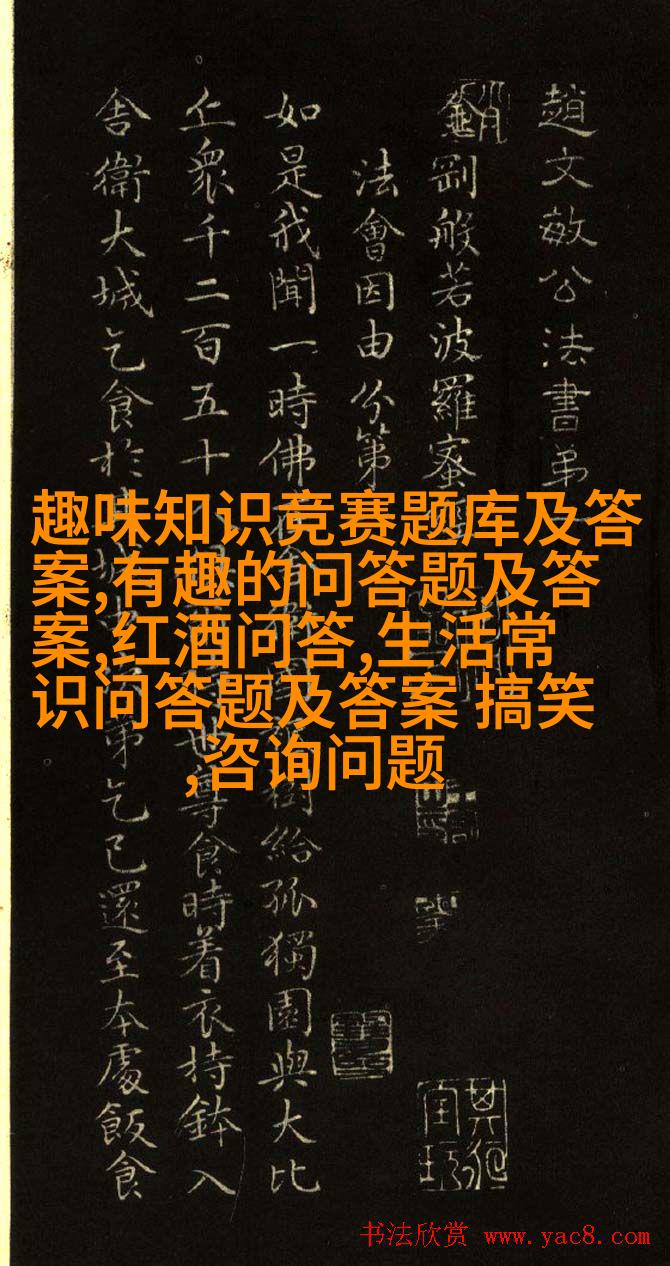 趙文敏公法書弟
金剛般若波羅蜜
法會因由分第
如是我聞一時佛 樹給孤獨園與大比
丘衆千二百五十 世尊食時着衣持鉢入
舍衛大城乞食於 第乞已還至本處飯食
趣味知识竞赛题库及答
案,有趣的问答题及答
案,红酒问答,生活常
识问答题及答案 搞笑
,咨询问题
书法欣赏 www.yac8.com